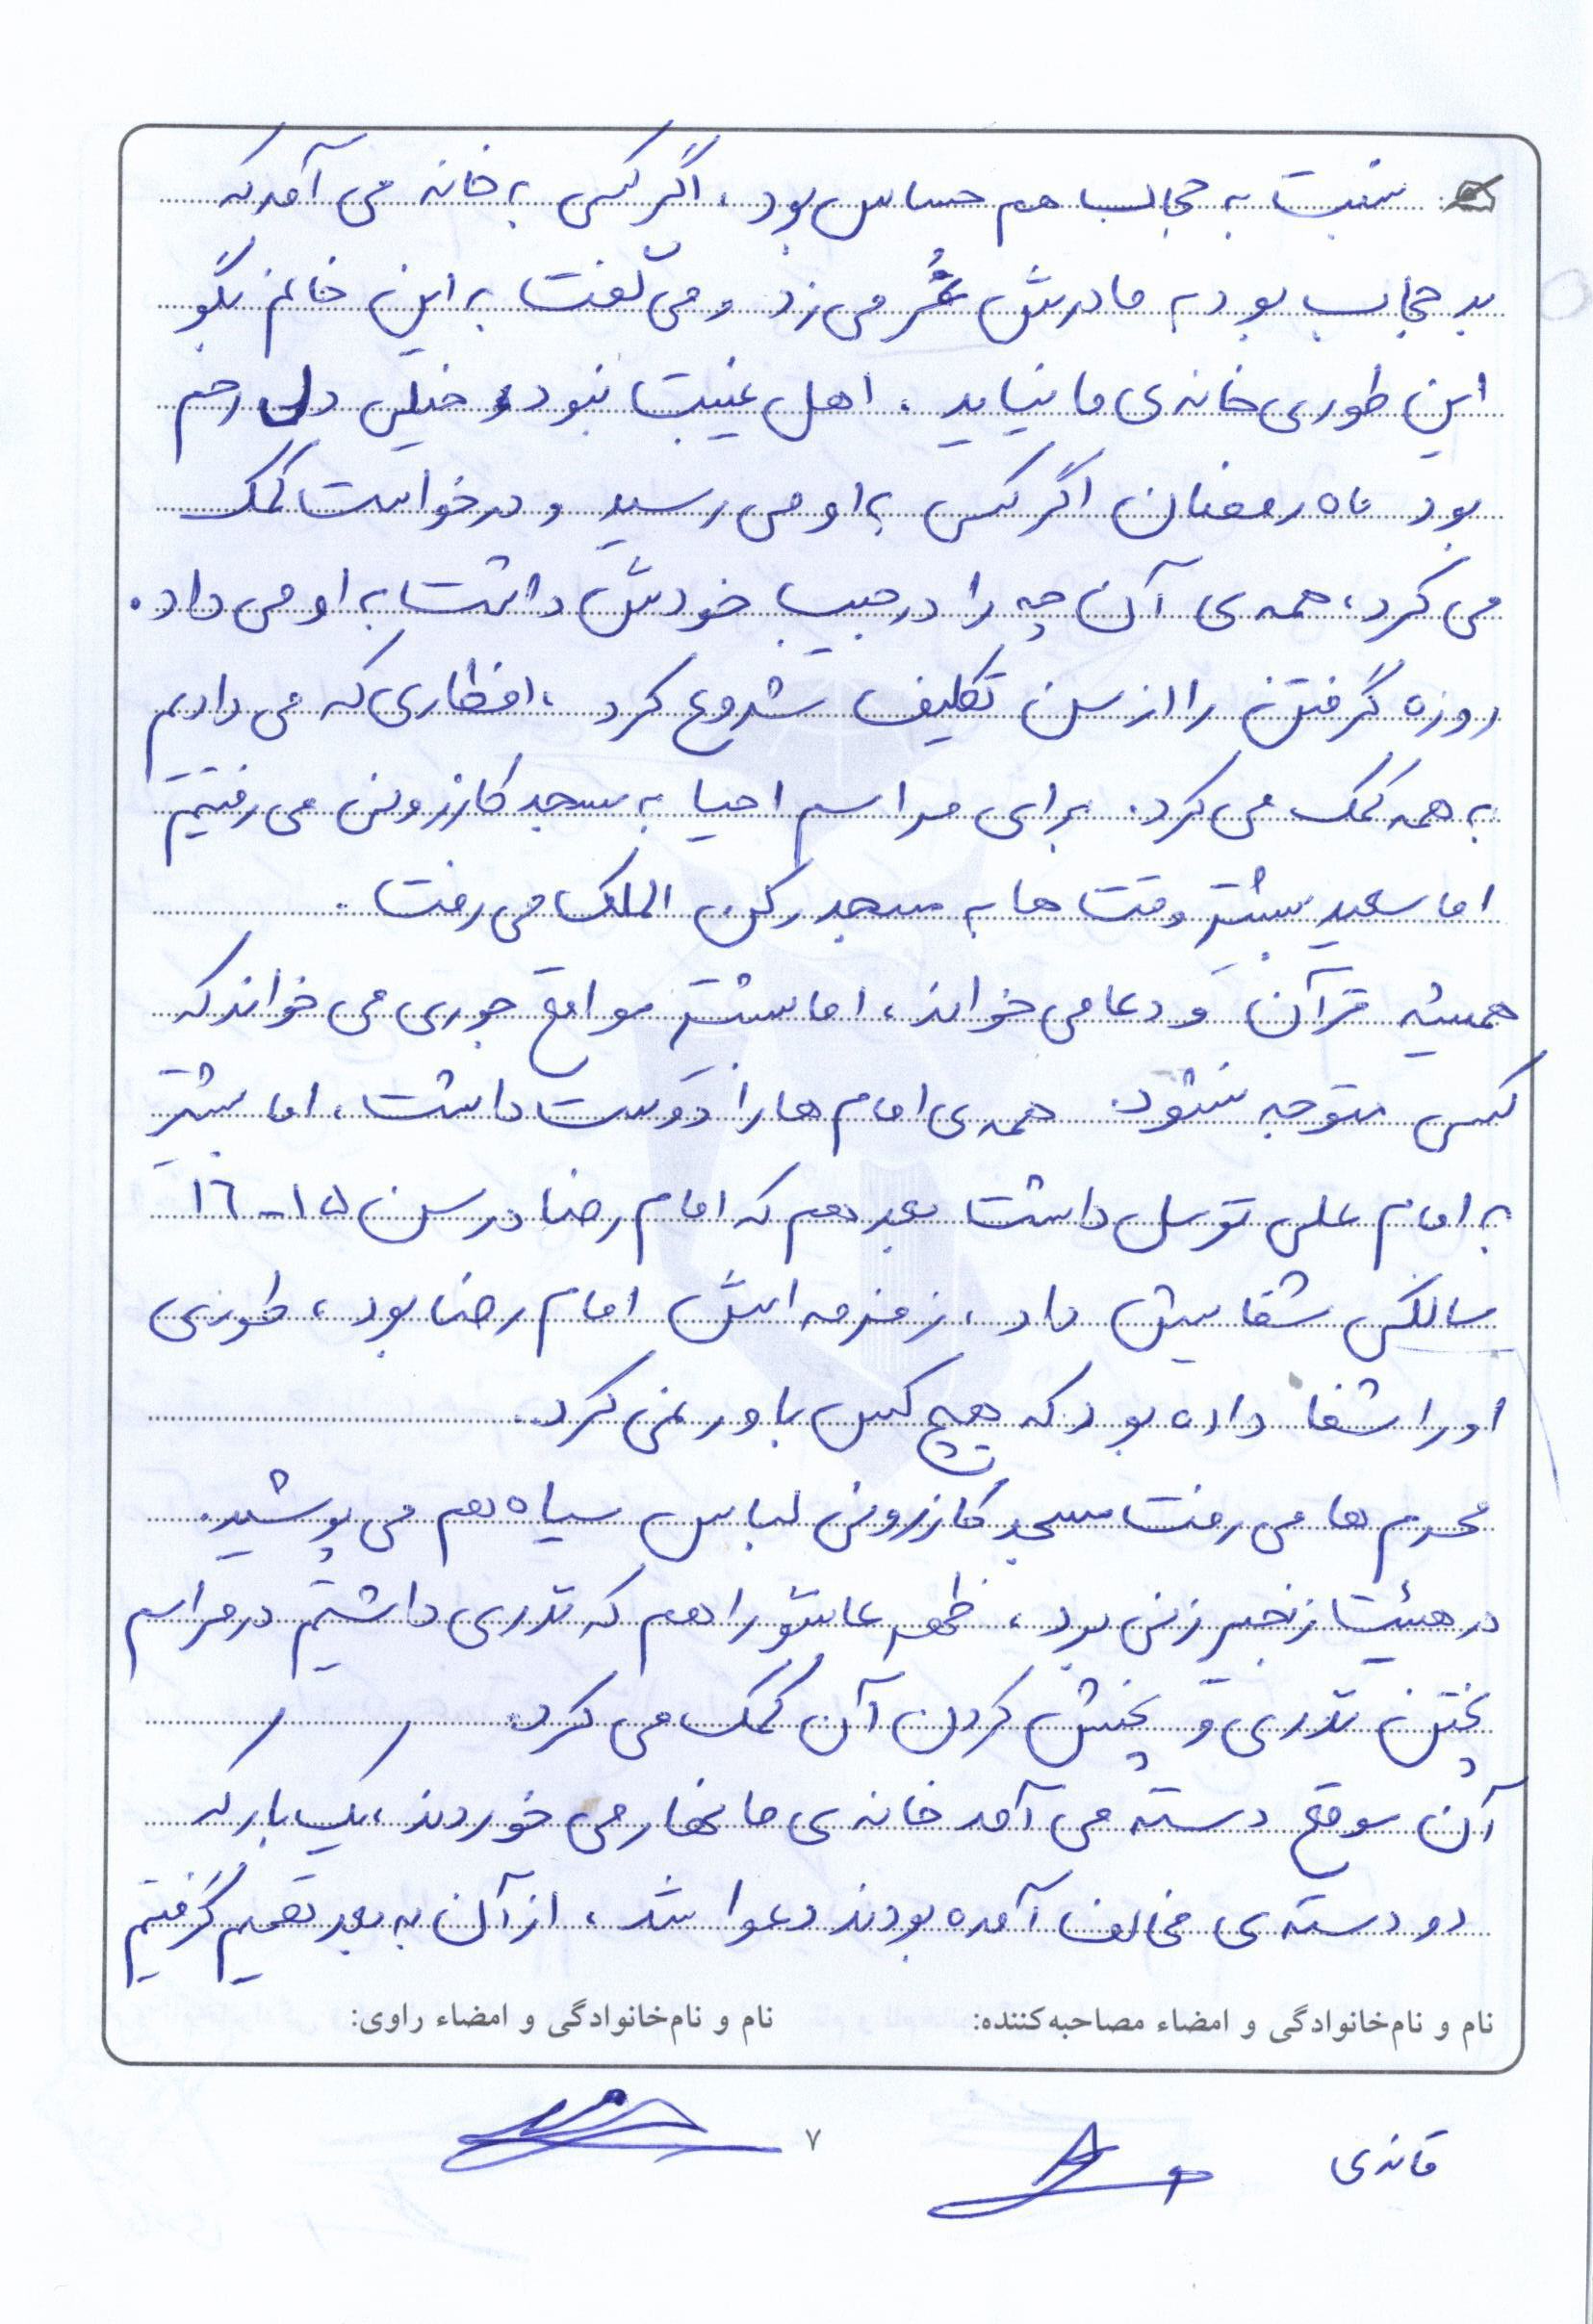 نسبت به حجاب هم حساس بود، اگر کسی به خانه می آمد که
بد حجاب بود به مادرش غُر می زد و می گفت به این خانم بگو
این طوری خانه ی ما نیاید. اهل غیبت نبود و خیلی دل رحم
بود ماه رمضان اگر کسی به او می رسید و درخواست کمک
می کرد، همه ی آن چه را در جیب خودش داشت به او می داد.
روزه گرفتن را از سن تکلیف شروع کرد، افطاری که می دادیم
به همه کمک می کرد. برای مراسم احیا به مسجد کازرونی می رفتیم
اما سعید بیشتر وقت ها به مسجد رکن الملک می رفت.
همیشه قرآن و دعا می خواند، اما بیشتر مواقع جوری می خواند که
کسی متوجه نشود. همه ی امام ها را دوست داشت، اما بیشتر
به امام علی توسل داشت بعد هم که امام رضا در سن ۱۵-۱۶
سالگی شفایش داد، زمزمه اش امام رضا بود، طوری
او را شفا داده بود که هیچ کس باور نمی کرد.
محرم ها می رفت مسجد کازرونی لباس سیاه هم می پوشید.
در هیئت زنجیر زنی بود، ظهر عاشورا هم که نذری داشتیم در مراسم
پختن نذری و پخش کردن آن کمک می کرد.
آن موقع دسته می آمد خانه ی ما نهار می خوردند، یک بار که
دو دسته ی مخالف آمده بودند دعوا شد، از آن به بعد تصمیم گرفتیم
نام و نام‌خانوادگی و امضاء مصاحبه‌کننده: نام و نام‌خانوادگی و امضاء راوی:
۷